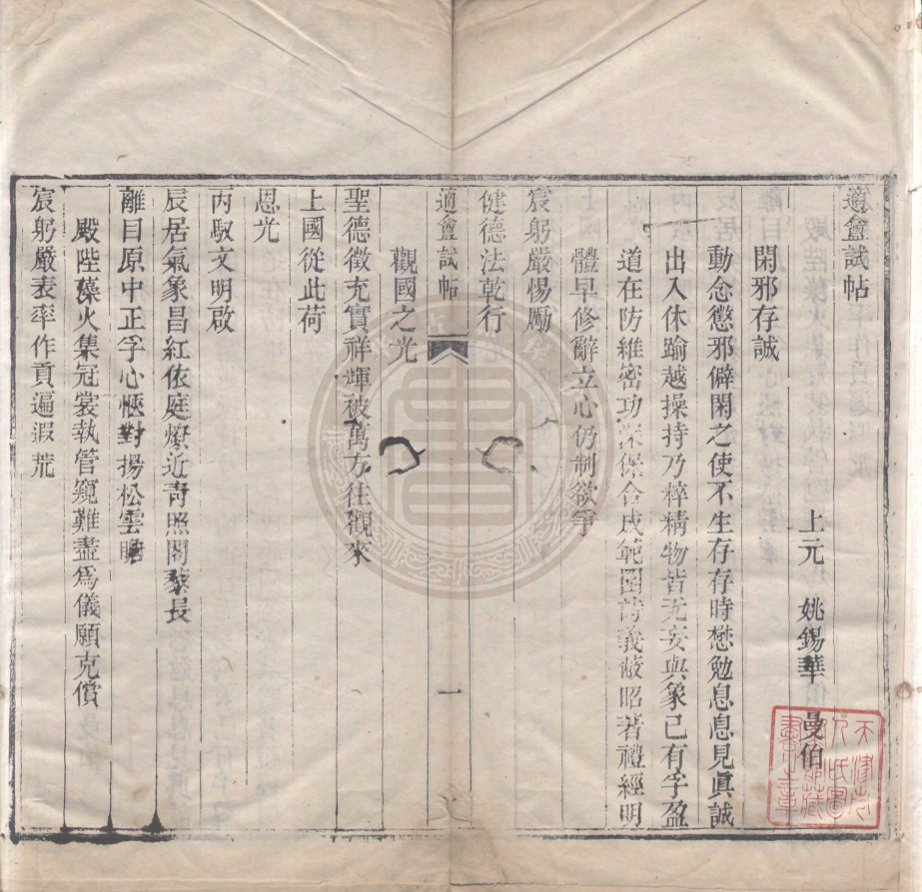 適盦試帖
上元 姚錫華 曼伯
閑邪存誠
動念懲邪僻閑之使不生存存時懋勉息息見眞誠
出入休踰越操持乃粹精物皆无妄與象已有孚盈
道在防維密功深保合成範圍詩義蔽昭著禮經明
體早修辭立心仍制欲爭
宸躬嚴惕勵
健德法乾行
適盦試帖
一
觀國之光
聖德徵充實祥輝被萬方往觀來
上國從此荷
恩光
丙馭文明啟
辰居氣象昌紅依庭燎近靑照閣藜長
離目原中正孚心愜對揚松雲瞻
殿陛藻火集冠裳執管窺難盡爲儀願克償
宸躬嚴表率作貢遍遐荒